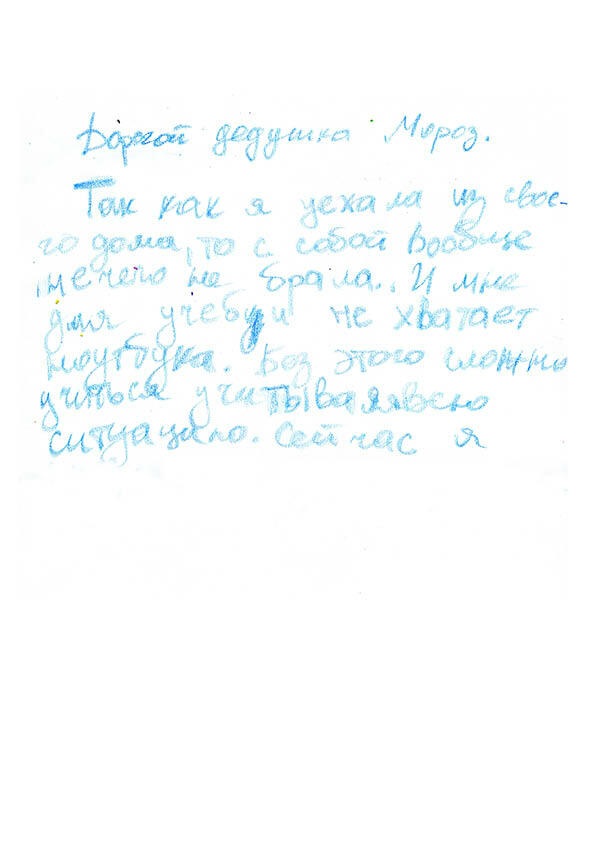 Дорогой дедушка Мороз.
Так как я уехала из свое-
го дома, то с собой вообще
нечего не брала. И мне
для учебы не хватает
ноутбука. Без этого сложно
учиться учитывая всю
ситуацию. Сейчас я